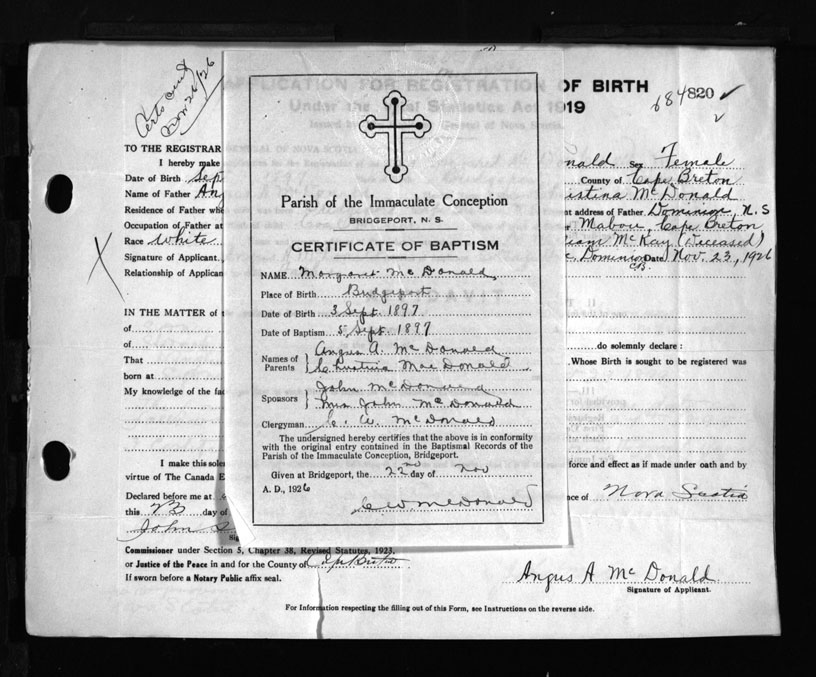 Certs and
Nov 26/26
APPLICATION FOR REGISTRATION OF BIRTH
Under the Vital Statistics Act 1919
684820
TO THE REGISTRAR GENERAL OF NOVA SCOTIA
I hereby make
onald Sex Female
Date of Birth Sep 1897
County of Cape Breton
Name of Father Ang
istina McDonald
Residence of Father whe
nt address of Father Dominion, N.S
Occupation of Father at
r Mabou, Cape Breton
Race White
iam McKay (Deceased)
Signature of Applicant
Dominion C.B. Date Nov. 23, 1926
Relationship of Applican
IN THE MATTER of
of
of
do solemnly declare :
That
Whose Birth is sought to be registered was
born at
My knowledge of the fac
I make this sole
force and effect as if made under oath and by
virtue of The Canada E
Declared before me at
nce of Nova Scotia
this 23 day of
John S
Commissioner under Section 5, Chapter 38, Revised Statutes, 1923.
or Justice of the Peace in and for the County of Cape Breton
If sworn before a Notary Public affix seal.
Angus A McDonald
Signature of Applicant.
For Information respecting the filling out of this Form, see Instructions on the reverse side.
Parish of the Immaculate Conception
BRIDGEPORT, N. S.
CERTIFICATE OF BAPTISM
NAME Margaret McDonald
Place of Birth Bridgeport
Date of Birth 3 Sept. 1897
Date of Baptism 5 Sept. 1897
Names of Parents Angus A. McDonald
Christina MacDonald
Sponsors John McDonald
Mrs John McDonald
Clergyman C. W. McDonald
The undersigned hereby certifies that the above is in conformity
with the original entry contained in the Baptismal Records of the
Parish of the Immaculate Conception, Bridgeport.
Given at Bridgeport, the 22nd day of Nov
A. D., 1926
C W McDonald